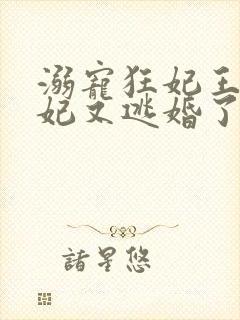 溺寵狂妃王
妃又逃婚了
諸星悠